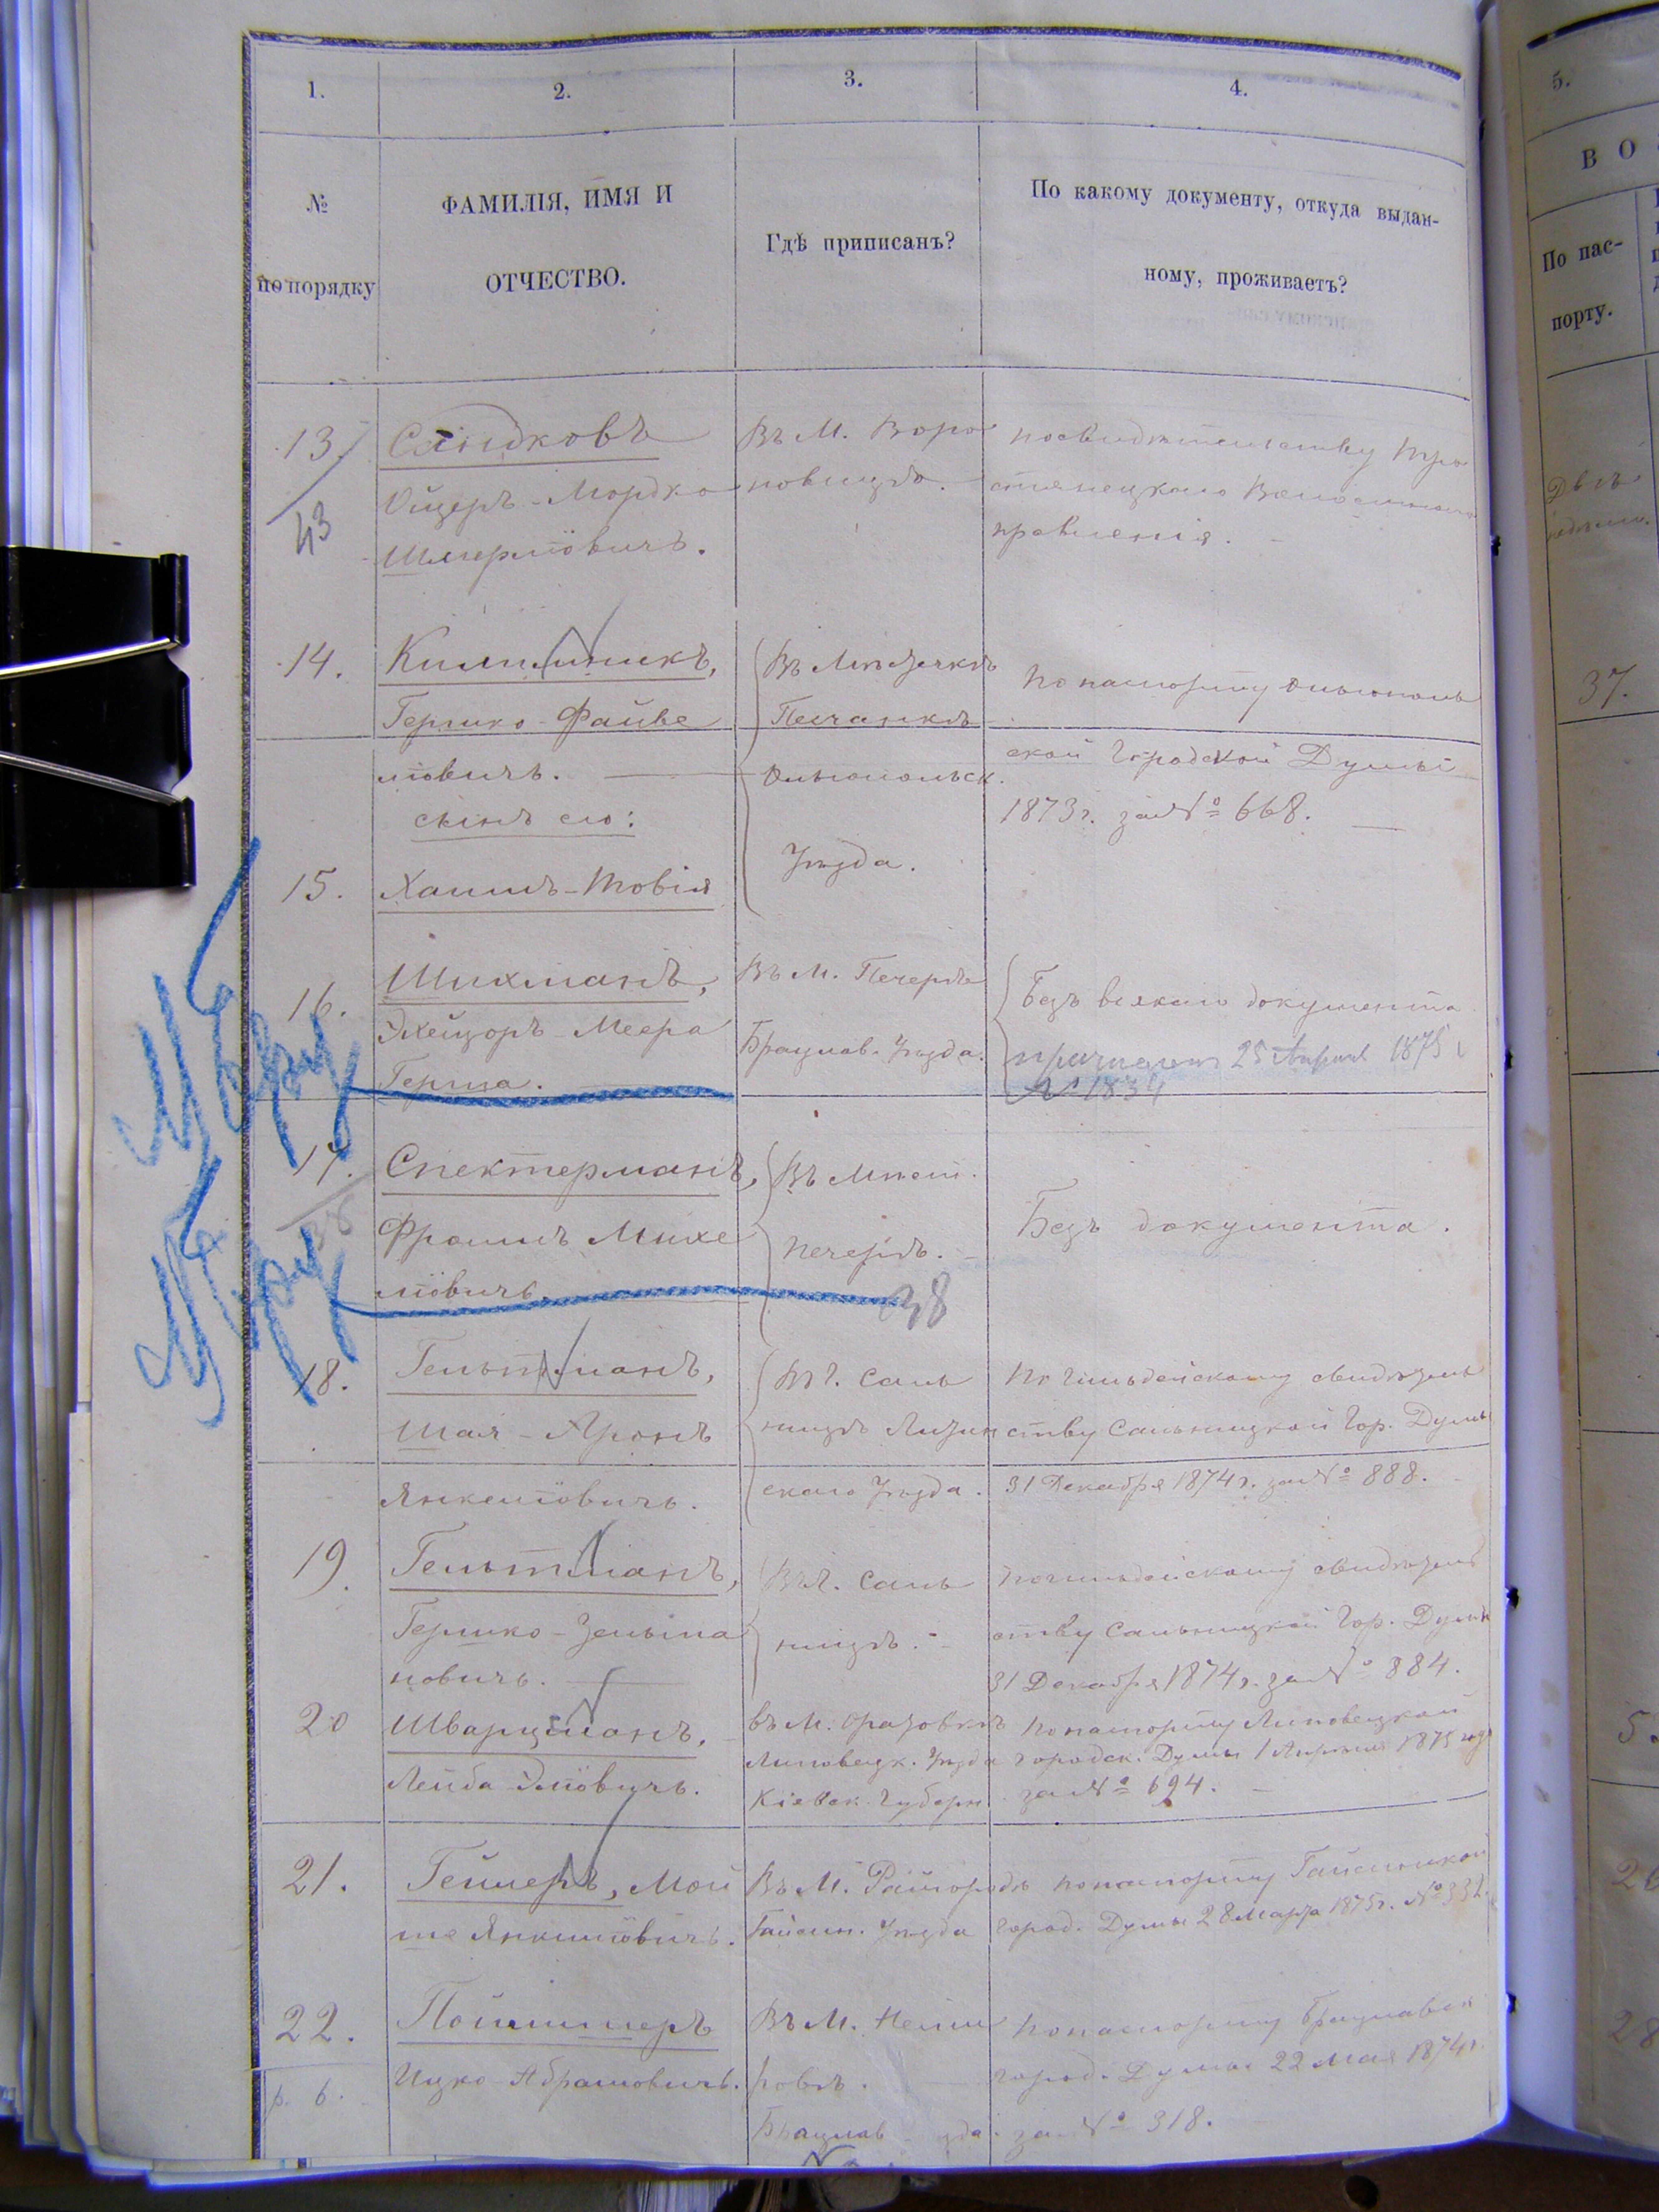 1.
2.
3.
4.
№
по порядку
ФАМИЛІЯ, ИМЯ И
ОТЧЕСТВО.
Гдѣ приписанъ?
По какому документу, откуда выдан-
ному, проживаетъ?
5.
В О
По пас-
порту.
13
43
Ойцеръ-Мордко
Шмерлiовичъ.
Въ М. Воро
новицѣ.
по свидѣтельству Тро
стянецкаго Волостнаго
правленія.
14.
Килимникъ,
Гершко-Файве
лiовичъ.
Въ Мѣстечкѣ
Песчанкѣ
Ольгопольск.
Уѣзда.
По паспорту Ольгополь
ской Городской Думы
1873 г. за № 668.
37.
сынъ его:
15.
Хаимъ-Товія
16.
Шихманъ,
Элейзоръ-Меера
Герша.
Въ М. Печерѣ
Брацлав. Уѣзда.
Безъ всякаго документа
25 Апреля 1875
№ 1834
17.
Спектерманъ,
Фроимъ Михе
лiовичъ.
Въ Мѣст.
Печерѣ.
38
Безъ документа.
18.
Гельтманъ,
Шая-Аронъ
Янкелiовичъ.
Въ г. Саль
ницѣ Литин
скаго Уѣзда.
По гильдейскому свидѣтель
ству Сальницкой Гор. Думы
31 Декабря 1874 г. за № 888.
19.
Гельтманъ,
Гершко-Зельма
новичъ.
Въ г. Саль
ницѣ.
По гильдейскому свидѣтель
ству Сальницкой Гор. Думы
31 Декабря 1874 г. за № 884.
20
Шварцманъ,
Лейба Элiовичъ.
въ М. Оратовкѣ
Липовецк. Уѣзда
Кіевск. Губерн.
По паспорту Липовецкой
Городск. Думы 1 Апреля 1875 года
за № 694.
21.
Геллеръ, Мой
ше Янкелiовичъ.
Въ М. Райгородѣ
Гайсин. Уѣзда
По паспорту Гайсинской
Город. Думы 28 Марта 1875 г. № 332.
22.
Ицко Абрамовичъ.
Въ М. Неми
ровѣ.
Брацлав
По паспорту Брацлавск
город. Думы 22 Мая 1874 г.
за № 318.
р. 6.